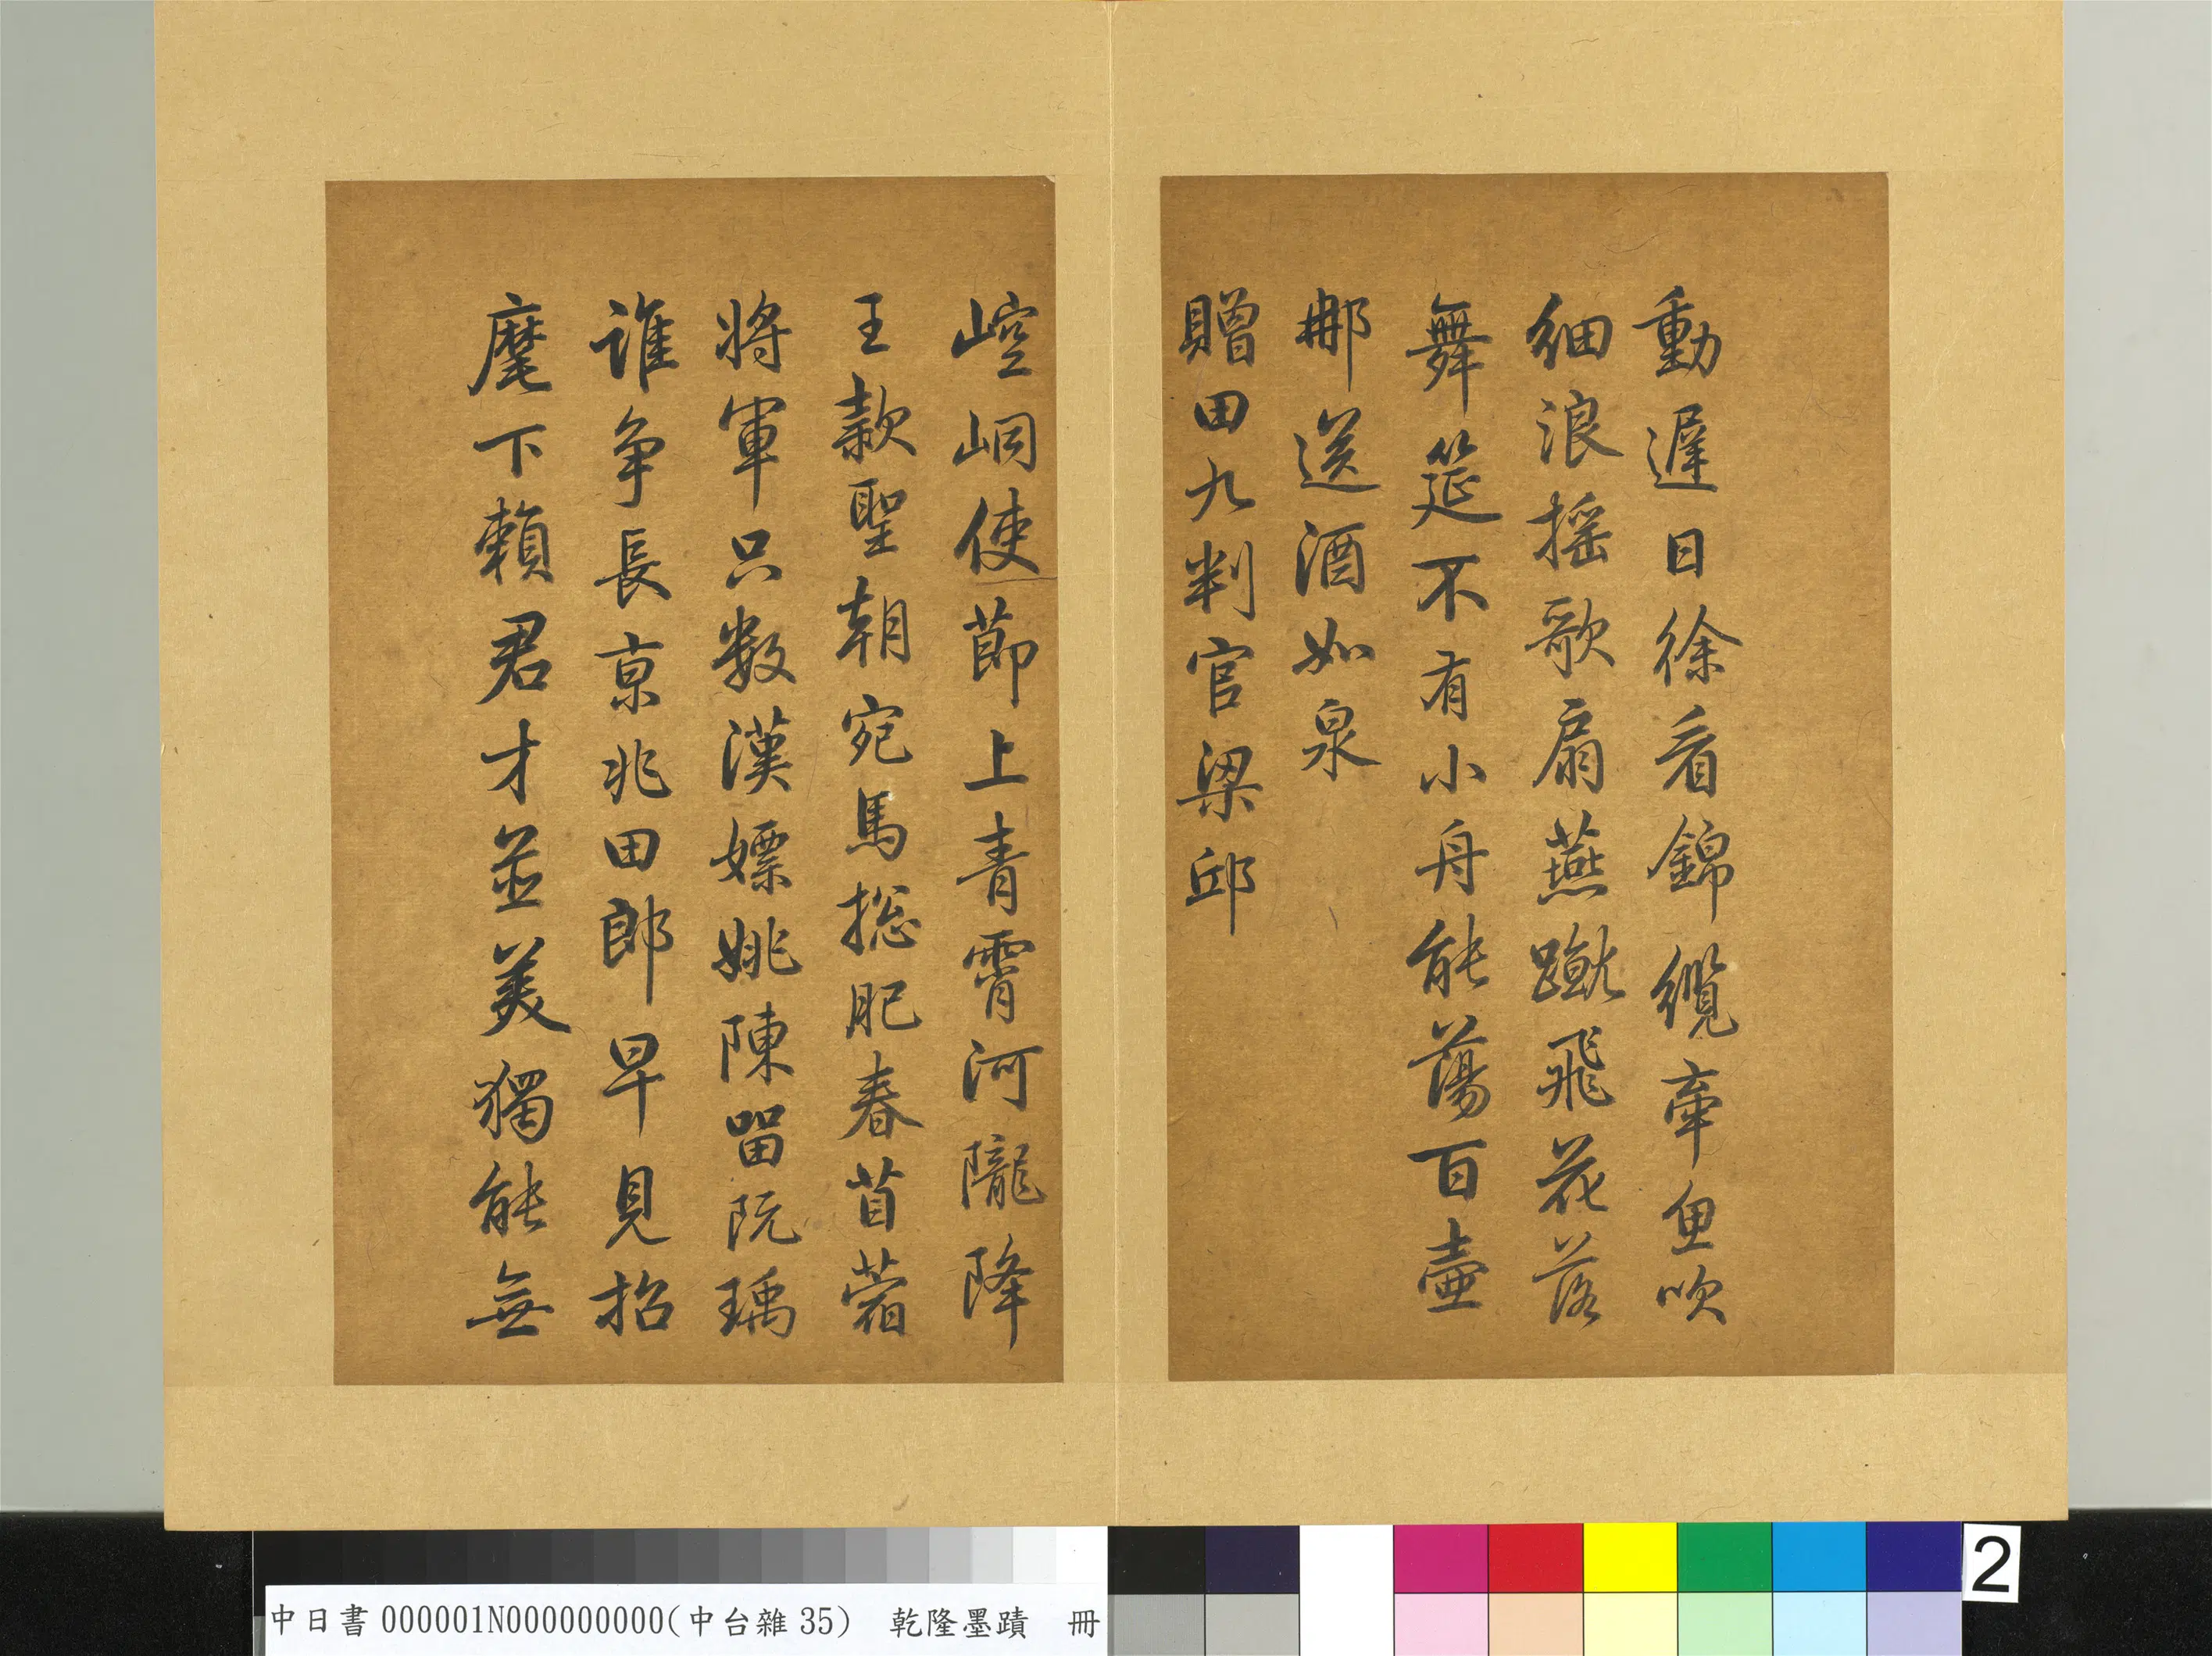 動遲日徐看錦纜牽魚吹
細浪搖歌扇燕蹴飛花落
舞筵不有小舟能蕩百壺
那送酒如泉
贈田九判官梁邱
崆峒使節上青霄河隴降
王款聖朝宛馬揔肥春苜蓿
將軍只數漢嫖姚陳留阮瑀
誰爭長京兆田郎早見招
麾下賴君才並美獨能無
中日書000001N000000000(中台雜35) 乾隆墨蹟 冊
2